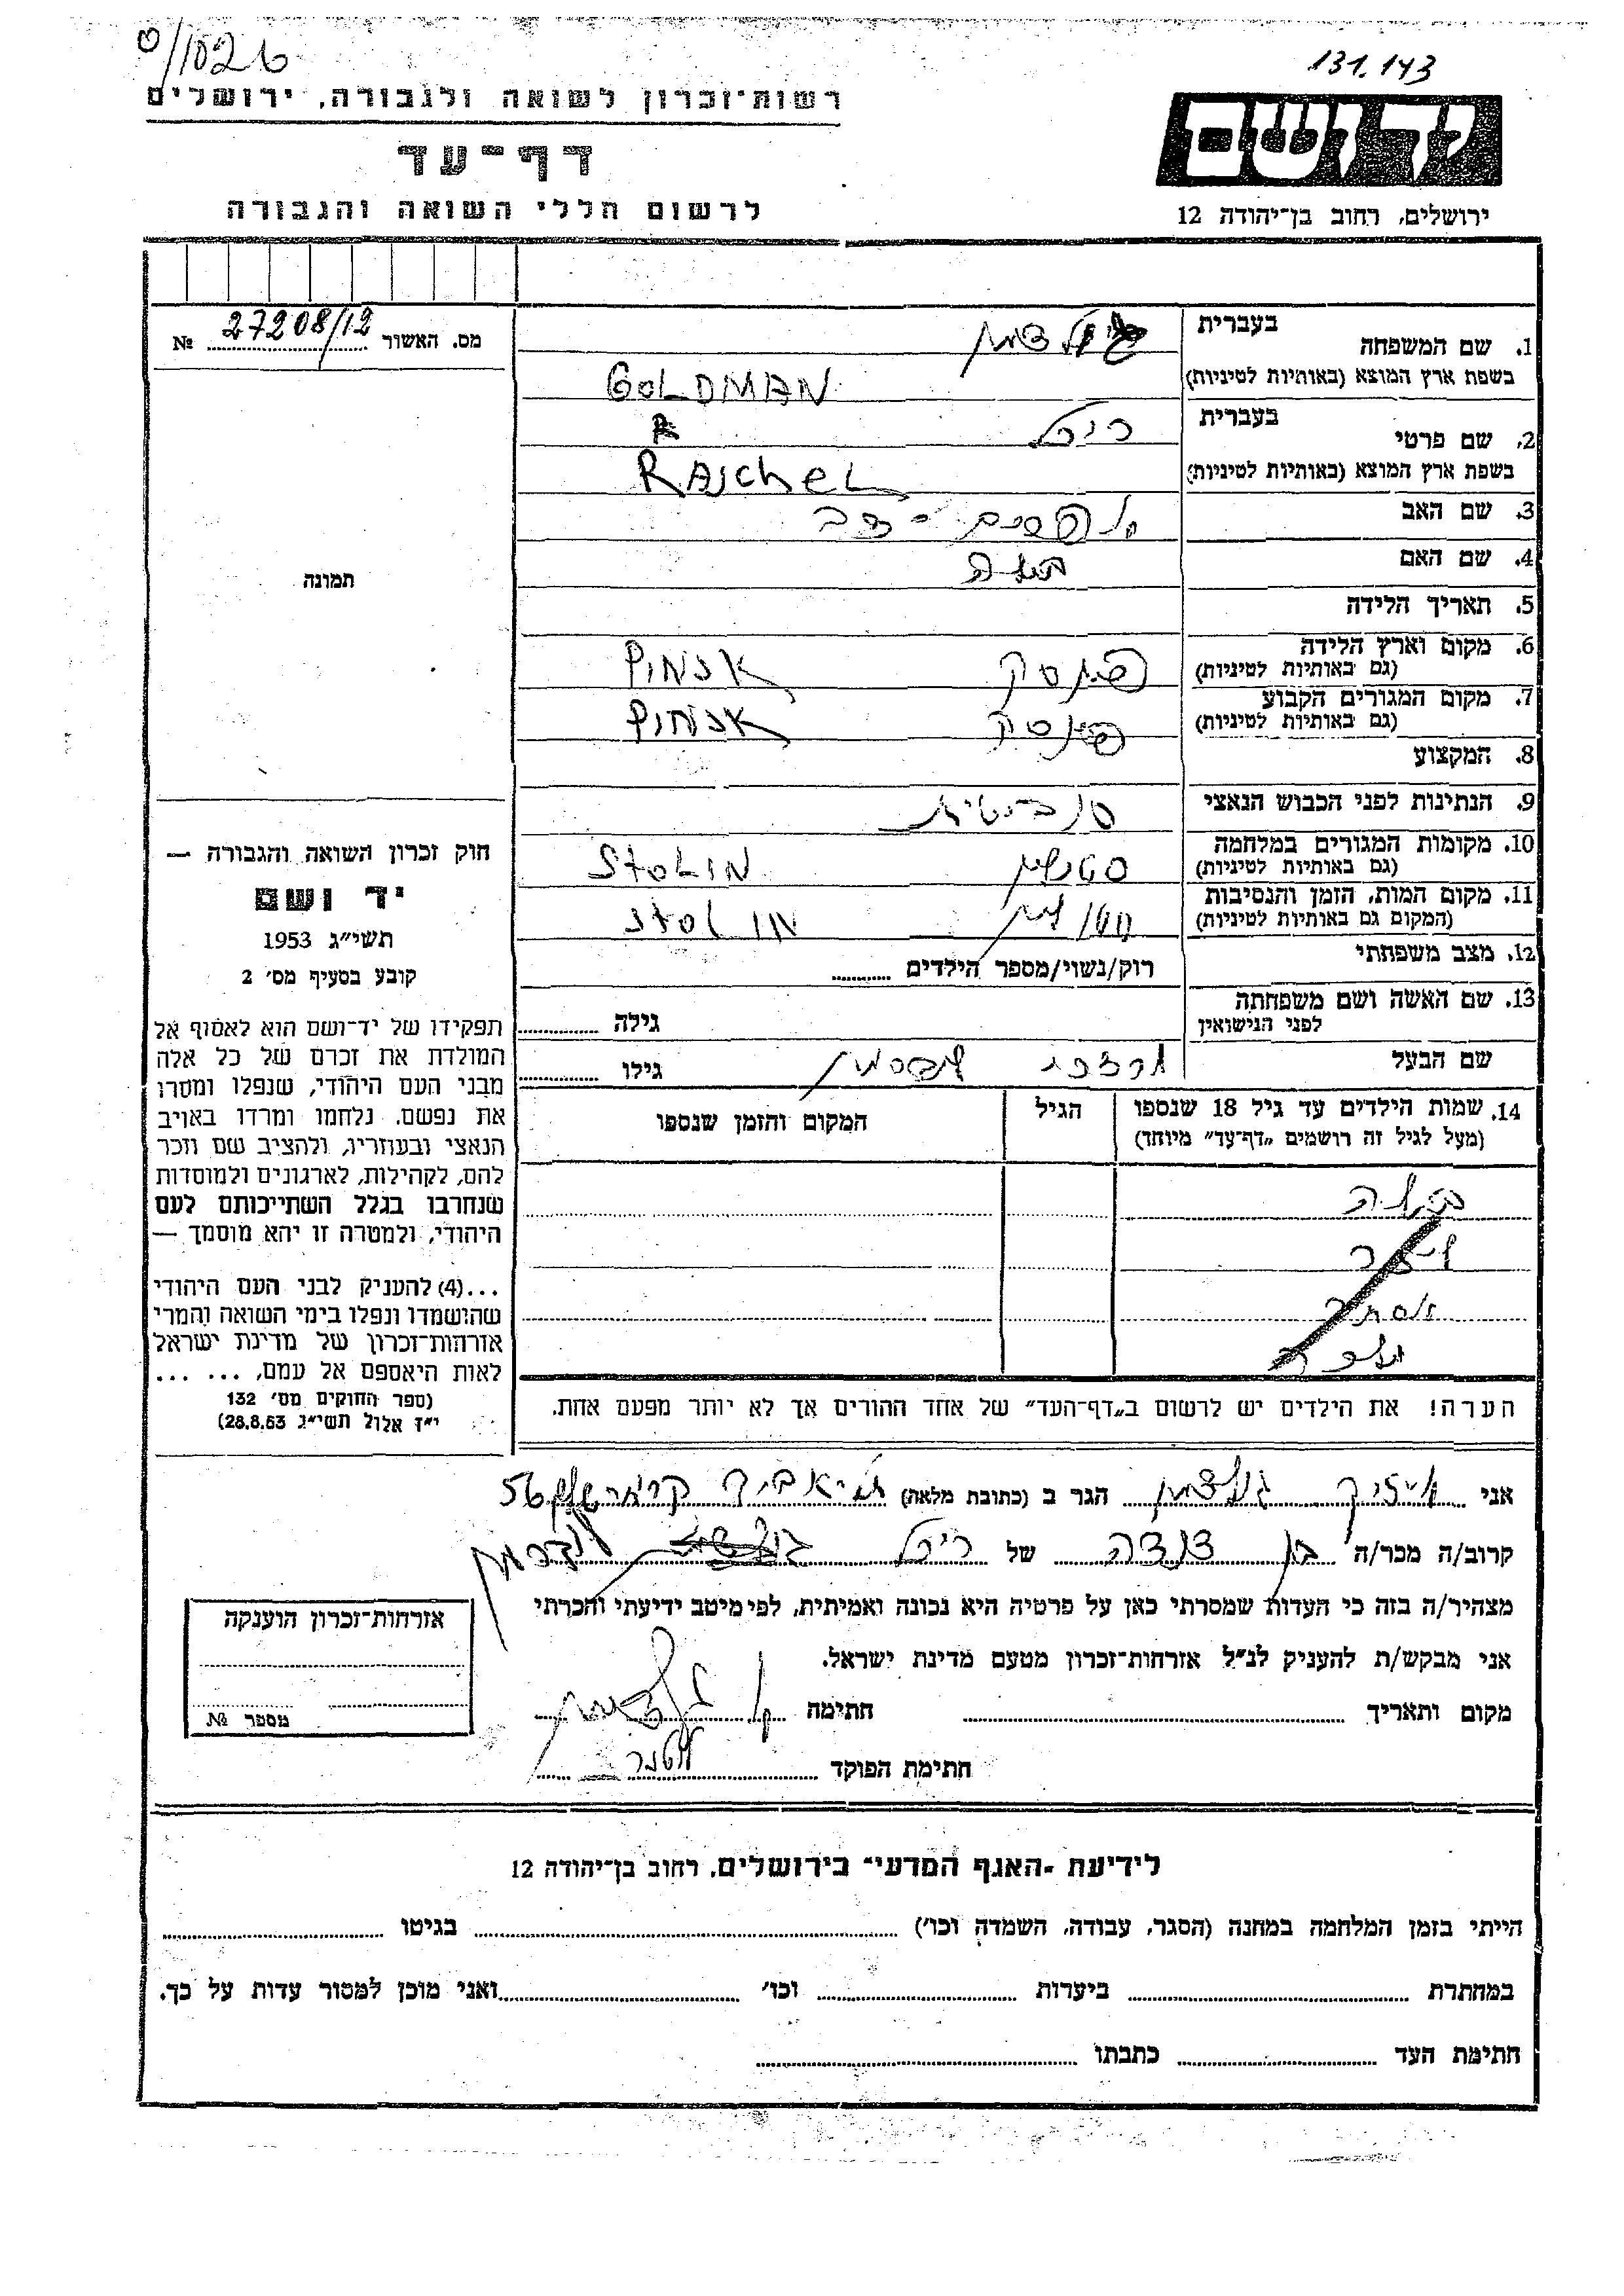 131.143
יד ושם
ירושלים, רחוב בן־יהודה 12
רשות־זכרון לשואה ולגבורה, ירושלים
דף־עד
לרשום חללי השואה והגבורה
מס. האשור 27208/12 №
תמונה
1. שם המשפחה בעברית
בשפת ארץ המוצא (באותיות לטיניות) GOLDMAN
2. שם פרטי בעברית
בשפת ארץ המוצא (באותיות לטיניות) RAJCHEL
3. שם האב
4. שם האם
5. תאריך הלידה
6. מקום וארץ הלידה
(גם באותיות לטיניות) פינסק PINSK
7. מקום המגורים הקבוע
(גם באותיות לטיניות) פינסק PINSK
8. המקצוע
9. הנתינות לפני הכבוש הנאצי סוביטית
10. מקומות המגורים במלחמה
(גם באותיות לטיניות) סטולין STOLIN
11. מקום המות, הזמן והנסיבות
(המקום גם באותיות לטיניות) סטולין STOLIN
12. מצב משפחתי רוק/נשוי/מספר הילדים
13. שם האשה ושם משפחתה
לפני הנישואין גילה
שם הבעל גילו
14. שמות הילדים עד גיל 18 שנספו
(מעל לגיל זה רושמים „דף־עד” מיוחד)
הגיל
המקום והזמן שנספו
הערה! את הילדים יש לרשום ב„דף־העד” של אחד ההורים אך לא יותר מפעם אחת.
חוק זכרון השואה והגבורה —
יד ושם
תשי״ג 1953
קובע בסעיף מס׳ 2
תפקידו של יד־ושם הוא לאסוף אל
המולדת את זכרם של כל אלה
מבני העם היהודי, שנפלו ומסרו
את נפשם. נלחמו ומרדו באויב
הנאצי ובעוזריו, ולהציב שם וזכר
להם, לקהילות, לארגונים ולמוסדות
שנחרבו בגלל השתייכותם לעם
היהודי, ולמטרה זו יהא מוסמך —
...(4) להעניק לבני העם היהודי
שהושמדו ונפלו בימי השואה והמרי
אזרחות־זכרון של מדינת ישראל
לאות היאספם אל עמם, ... ...
(ספר החוקים מס׳ 132
י״ז אלול תשי״ג 28.8.53)
אני אייזיק גולדמן הגר ב (כתובת מלאה) 56
קרוב/ה מכר/ה בן דודה של
מצהיר/ה בזה כי העדות שמסרתי כאן על פרטיה היא נכונה ואמיתית, לפי מיטב ידיעתי והכרתי
אני מבקש/ת להעניק לנ״ל אזרחות־זכרון מטעם מדינת ישראל.
מקום ותאריך חתימה
חתימת הפוקד
אזרחות־זכרון הוענקה
מספר №
לידיעת ״האגף המדעי״ בירושלים, רחוב בן־יהודה 12
הייתי בזמן המלחמה במחנה (הסגר, עבודה, השמדה וכו׳) בגיטו
במחתרת ביערות וכו׳ ואני מוכן למסור עדות על כך.
חתימת העד כתבתו